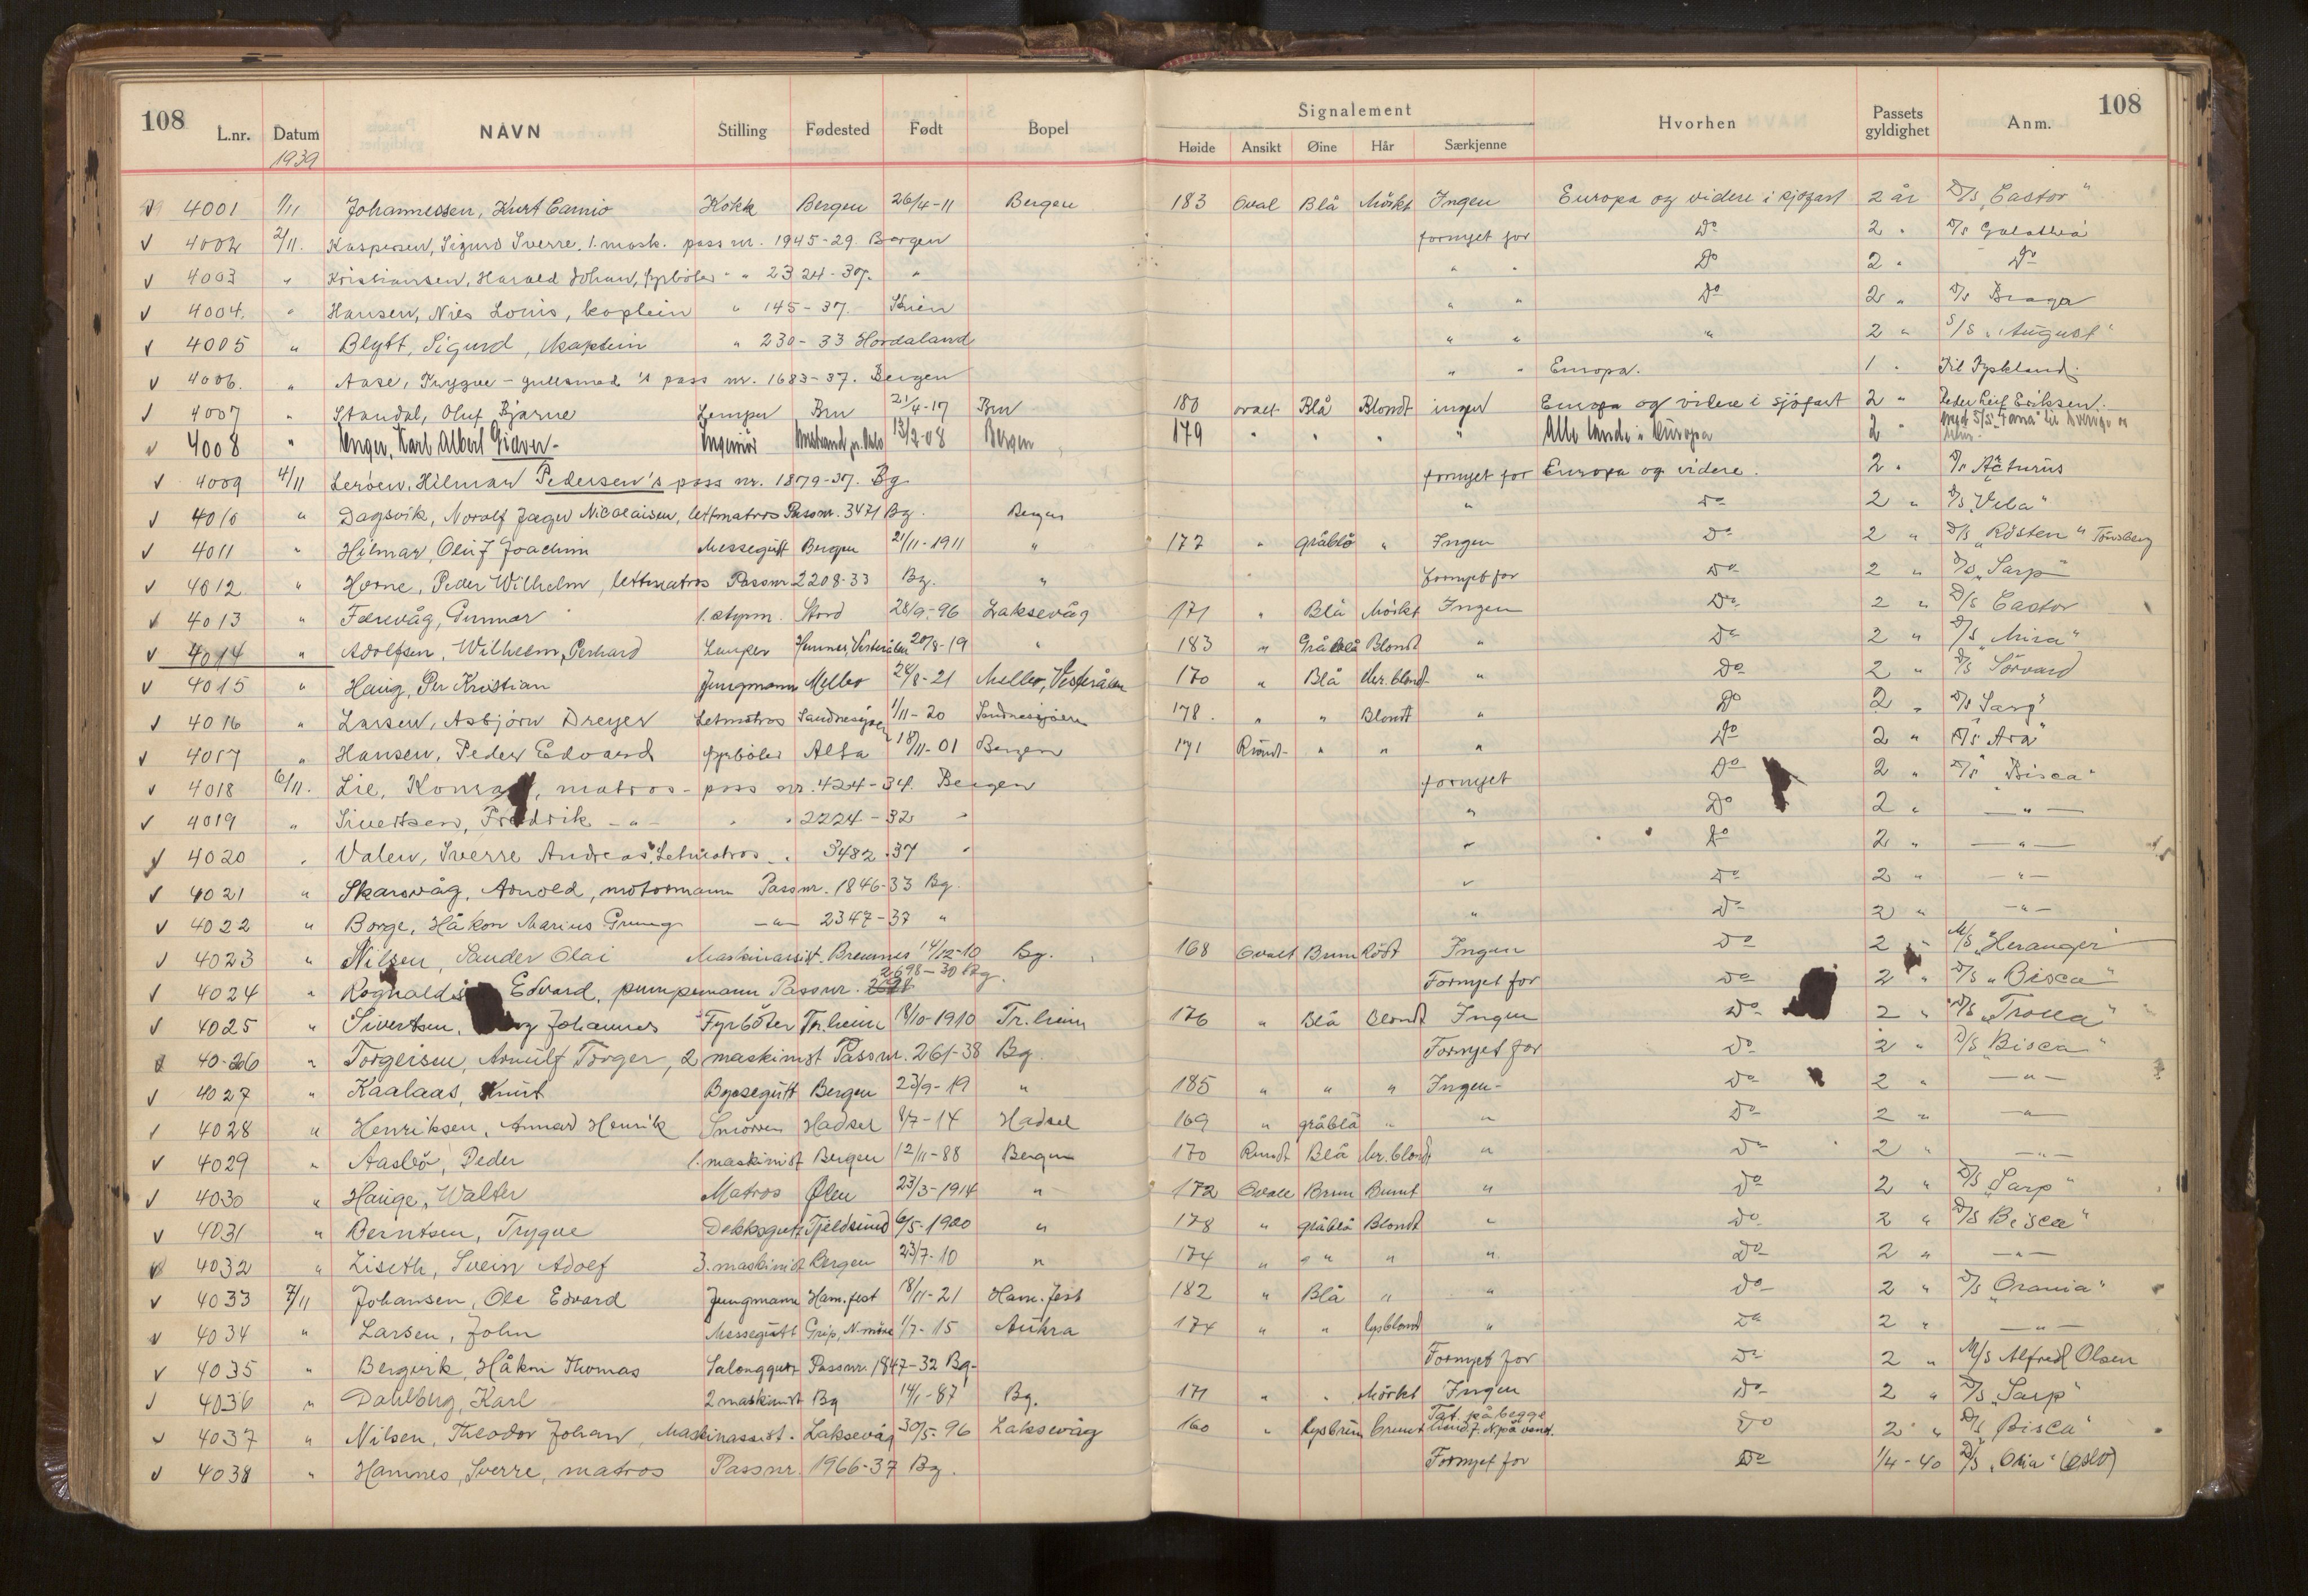 108 Signalement 108
L.nr. Datum NAVN Stilling Fødested Født Bopel Høide Ansikt Øine Hår Særkjenne Hvorhen Passets gyldighet Anm.
1939
v 4001 1/11 Johannessen, Kurt Carnio Kokk Bergen 26/4-11 Bergen 183 Oval Blå Mörkt Ingen Europa og videre i sjöfart 2 år D/S "Castor"
v 4002 2/11. Kaspersen, Sigurd Sverre, 1. mask. pass nr. 1945-29. Bergen fornyet for Do 2 " D/S Galathea
v 4003 " Kristiansen, Harald Johan, fyrböter " " 2324-37. " " " Do 2 " Do
v 4004. " Hansen, Nils Louis, kaptein " 145-37. Skien " " Do 2 " D/S Braga
v 4005 " Blytt, Sigurd, kaptein " 230-33 Hordaland " " " 2 " S/S "August"
v 4006. " Aase, Trygve - gullsmed 's pass nr. 1683-37. Bergen " " Europa. 1 " Til Tyskland.
v 4007 " Standal, Oluf Bjarne Lemper Brn 21/4-17 Brn 180 ovalt Blå Blondt ingen Europa og videre i sjöfart 2 " Peder Leif Eriksen.
v 4008 " Unger, Karl Albert Gidøen- Ingeniör 13/2-08 Bergen 179 " " " " Alle lande i Europa 2 "
v 4009 4/11 Leröen, Hilmar Pedersen's pass nr. 1879-37. Bg. fornyet for Europa og videre. 2 " D/S Acturus
v 4010 " Dagsvik, Norolf Jæger Nicolaisen, lettmatros Passnr. 3471 Bg. Bergen " Do 2 " D/S "Vela"
v 4011 " Hilmar, Oluf Joachim Messegutt Bergen 21/11-1911 " 177 " gråblå " Ingen Do 2 " D/S "Rösten" Tönsberg
v 4012 " Horne, Peder Wilhelm, lettmatros Passnr 2208-33 Bg. " Fornyet for Do 2 " D/S "Sarp"
v 4013 " Færevåg, Gunnar 1. styrm. Stord 28/9-96 Laksevåg 171 " Blå Mörkt Ingen Do 2 " D/S Castor
v 4014 " Adolfsen, Wilhelm, Gerhard Lemper Hennes, Vesterålen 20/8-19 " 183 " Gråblå Blondt " Do 2 " D/S "Mira"
v 4015 " Haug, Per Kristian Jungmann Melbo 24/8-21 Melbo, Vesterålen 170 " Blå Mr. blond " Do 2 " D/S Sörvard
v 4016 " Larsen, Asbjörn Dreyer Letmatros Sandnesjöen 1/11-20 Sandnessjöen 178. " " Blondt " Do 2 " D/S "Sarp"
v 4017 " Hansen, Peder Edvard fyrböter Alta 18/11-01 Bergen 171 Rundt " " " Do 2 " D/S "Ara"
v 4018 6/11. Lie, Konrad, matros - pass nr. 424-34. Bergen fornyet Do 2 " D/S "Bisca"
v 4019 " Sivertsen, Fredrik - " - " " 2224-32 " " Do 2 " - " -
v 4020 " Valen, Sverre Andreas, Letmatros " 3482-37 " " Do 2 " - " -
v 4021 " Skarsvåg, Arnold, motormann Passnr. 1846-33 Bg. " Do 2 " - " -
v 4022 " Borge, Håkon Marius Grung - " - 2347-37 " " Do 2 " - " -
v 4023 " Nilsen, Sander Olai Maskinassist. Bremnes 14/12-10 Bg. 168 Ovalt Brun Rödt Ingen Do 2 " M/S "Heranger"
2698-30 Bg.
v 4024 " Edvard, pumpemann Passnr. Fornyet for Do 2 " D/S "Bisca"
v 4025 " Sivertsen, Johannes Fyrböter Tr.heim 8/10-1910 Tr.heim 176 " Blå Blondt Ingen Do 2 " D/S "Trolla"
v 4026 " Torgeisen, Arnulf Torger, 2 maskinist Passnr. 261-38 Bg. Fornyet for Do 2 " D/S "Bisca"
v 4027 " Kaalaas, Knut Byssegutt Bergen 23/9-19 " 185 " " " Ingen- Do 2 " - " -
v 4028 " Henriksen, Annar Henrik Smörer Hadsel 8/7-14 Hadsel 169 " gråblå " " Do 2 " - " -
v 4029 " Aasbö, Peder 1. maskinist Bergen 12/11-88 Bergen 170 Rundt Blå Mr. blond " Do 2 " - " -
v 4030 " Hauge, Walter Matros Ølen 23/3-1914 " 172 Ovalt Brun Brunt " Do 2 " D/S "Sarp"
v 4031 " Berntsen, Trygve Dekksgutt Tjeldsund 6/5-1920 " 178 " gråblå Blondt " Do 2 " D/S "Bisca"
v 4032 " Liseth, Svein Adolf 3. maskinist Bergen 23/7-10 " 174 " " " " Do 2 " - " -
v 4033 7/11 Johansen, Ole Edvard Jungmann Ham.fest 18/11-21 Ham.fest 182 " Blå " " Do 2 " D/S "Orania"
v 4034 " Larsen, John Messegutt Grip, N.møre 1/7-15 Aukra 174 " " lysblond " Do 2 " - " -
v 4035 " Bergvik, Håkon Thomas Salonggutt Passnr. 1847-32 Bg. Fornyet for Do 2 " M/S Alfred Olsen
v 4036 " Dahlberg, Karl 2 maskinist Bg 14/1-87 Bg. 171 " " Mörkt Ingen Do 2 " D/S "Sarp"
v 4037 " Nilsen, Theodor Johan, Maskinassist. Laksevåg 30/5-96 Laksevåg 160 " Lysbrun brunt Tat. på begge Do 2 " D/S "Bisca"
v 4038 " Hamnes, Sverre, matros Passnr. 1966-37 Bg. Fornyet for Do 1/4-40 D/S "Oria" (Oslo)